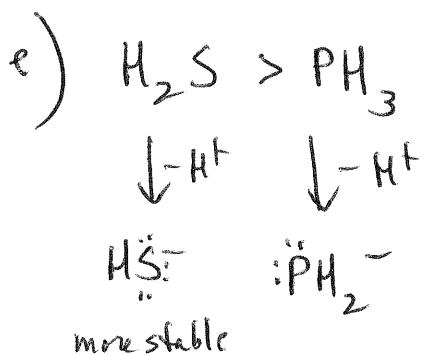 e) H₂S > PH₃
↓-H⁺ ↓-H⁺
HS̈:⁻ :P̈H₂⁻
more stable